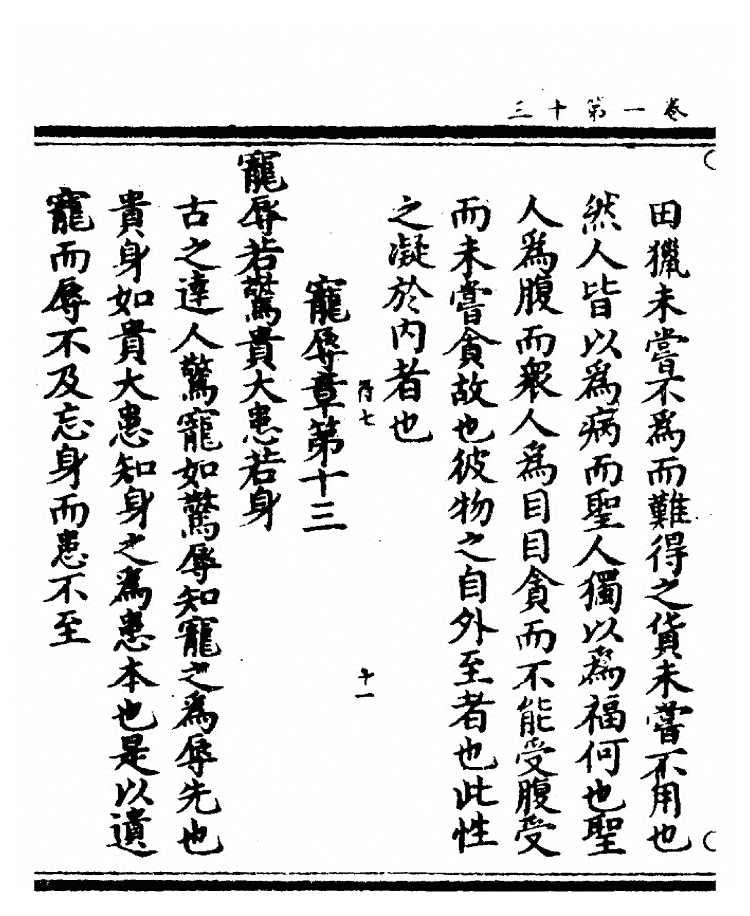 卷一第十三
田獵未嘗不爲而難得之貨未嘗不用也
然人皆以爲病而聖人獨以爲福何也聖
人爲腹而衆人爲目目貪而不能受腹受
而未嘗貪故也彼物之自外至者也此性
之凝於内者也
得七
十一
寵辱章第十三
寵辱若驚貴大患若身
古之達人驚寵如驚辱知寵之爲辱先也
貴身如貴大患知身之爲患本也是以遺
寵而辱不及忘身而患不至